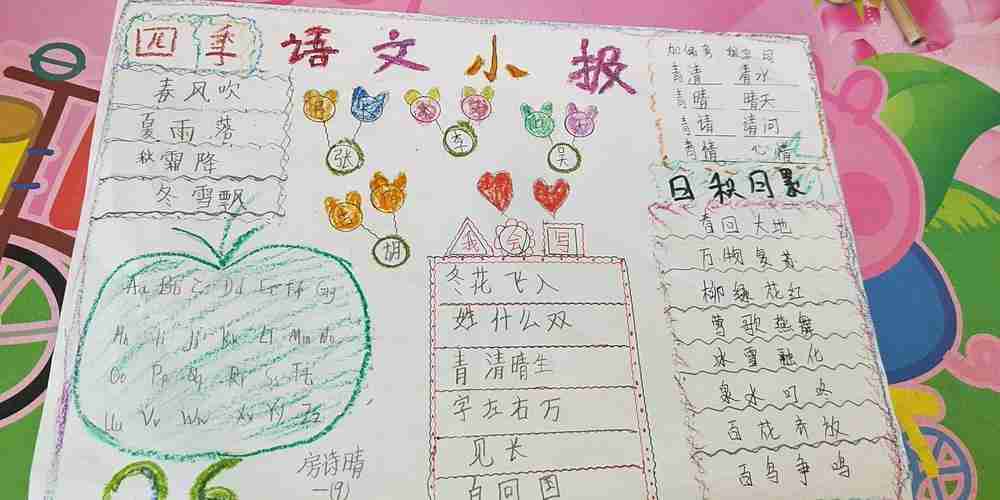 四季
语文小报
春风吹
夏雨落
秋霜降
冬雪飘
张
李
吴
胡
加偏旁 组字词
青清 清水
青晴 晴天
青请 请问
青情 心情
日积月累
春回大地
万物复苏
柳绿花红
莺歌燕舞
冰雪融化
泉水叮咚
百花齐放
百鸟争鸣
我会写
冬花飞入
姓什么双
青清晴生
字左右万
见长
百回国
Aa Bb Cc Dd Ee Ff Gg
Hh Ii Jj Kk Ll Mm Nn
Oo Pp Qq Rr Ss Tt
Uu Vv Ww Xx Yy Zz
房诗晴
一(9)